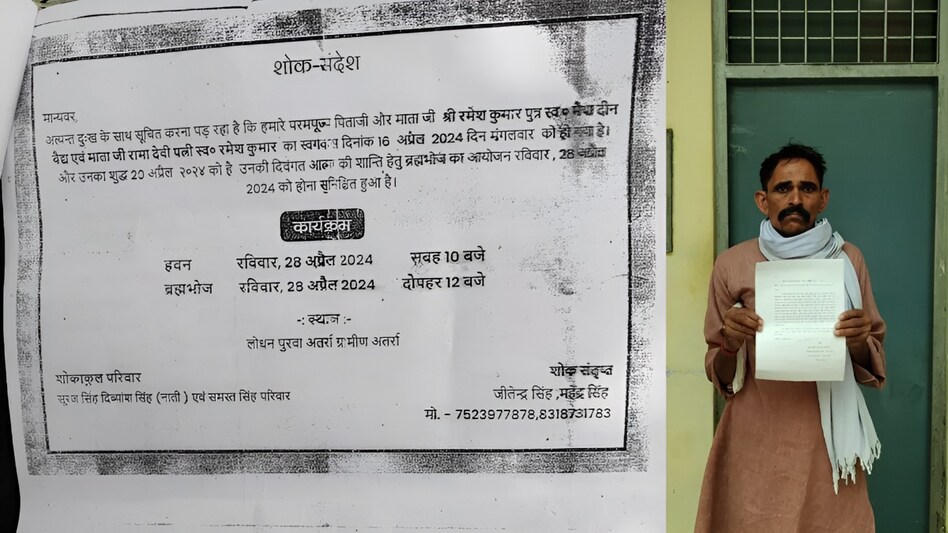 शोक-संदेश
मान्यवर,
अत्यन्त दुःख के साथ सूचित करना पड़ रहा है कि हमारे परमपूज्य पिताजी और माता जी श्री रमेश कुमार पुत्र स्व० मैया दीन
वैद्य एवं माता जी रामा देवी पत्नी स्व० रमेश कुमार का स्वर्गवास दिनांक 16 अप्रैल 2024 दिन मंगलवार को हो गया है।
और उनका शुद्ध 20 अप्रैल २०२४ को है उनकी दिवंगत आत्मा की शान्ति हेतु ब्रह्मभोज का आयोजन रविवार, 28 अप्रैल
2024 को होना सुनिश्चित हुआ है।
कार्यक्रम
हवन रविवार, 28 अप्रैल 2024 सुवह 10 बजे
ब्रह्मभोज रविवार, 28 अप्रैल 2024 दोपहर 12 बजे
-: स्थान :-
लोधन पुरवा अतर्रा ग्रामीण अतर्रा
शोकाकुल परिवार
सूरज सिंह दिव्यांश सिंह (नाती) एवं समस्त सिंह परिवार
शोक संतृप्त
जीतेन्द्र सिंह ,महेंद्र सिंह
मो. - 7523977878,8318731783